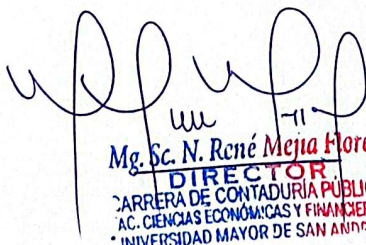 Mg. Sc. N. René Mejia Flore
DIRECTOR
CARRERA DE CONTADURÍA PÚBLIC
AC. CIENCIAS ECONÓMICAS Y FINANCIER
UNIVERSIDAD MAYOR DE SAN ANDR